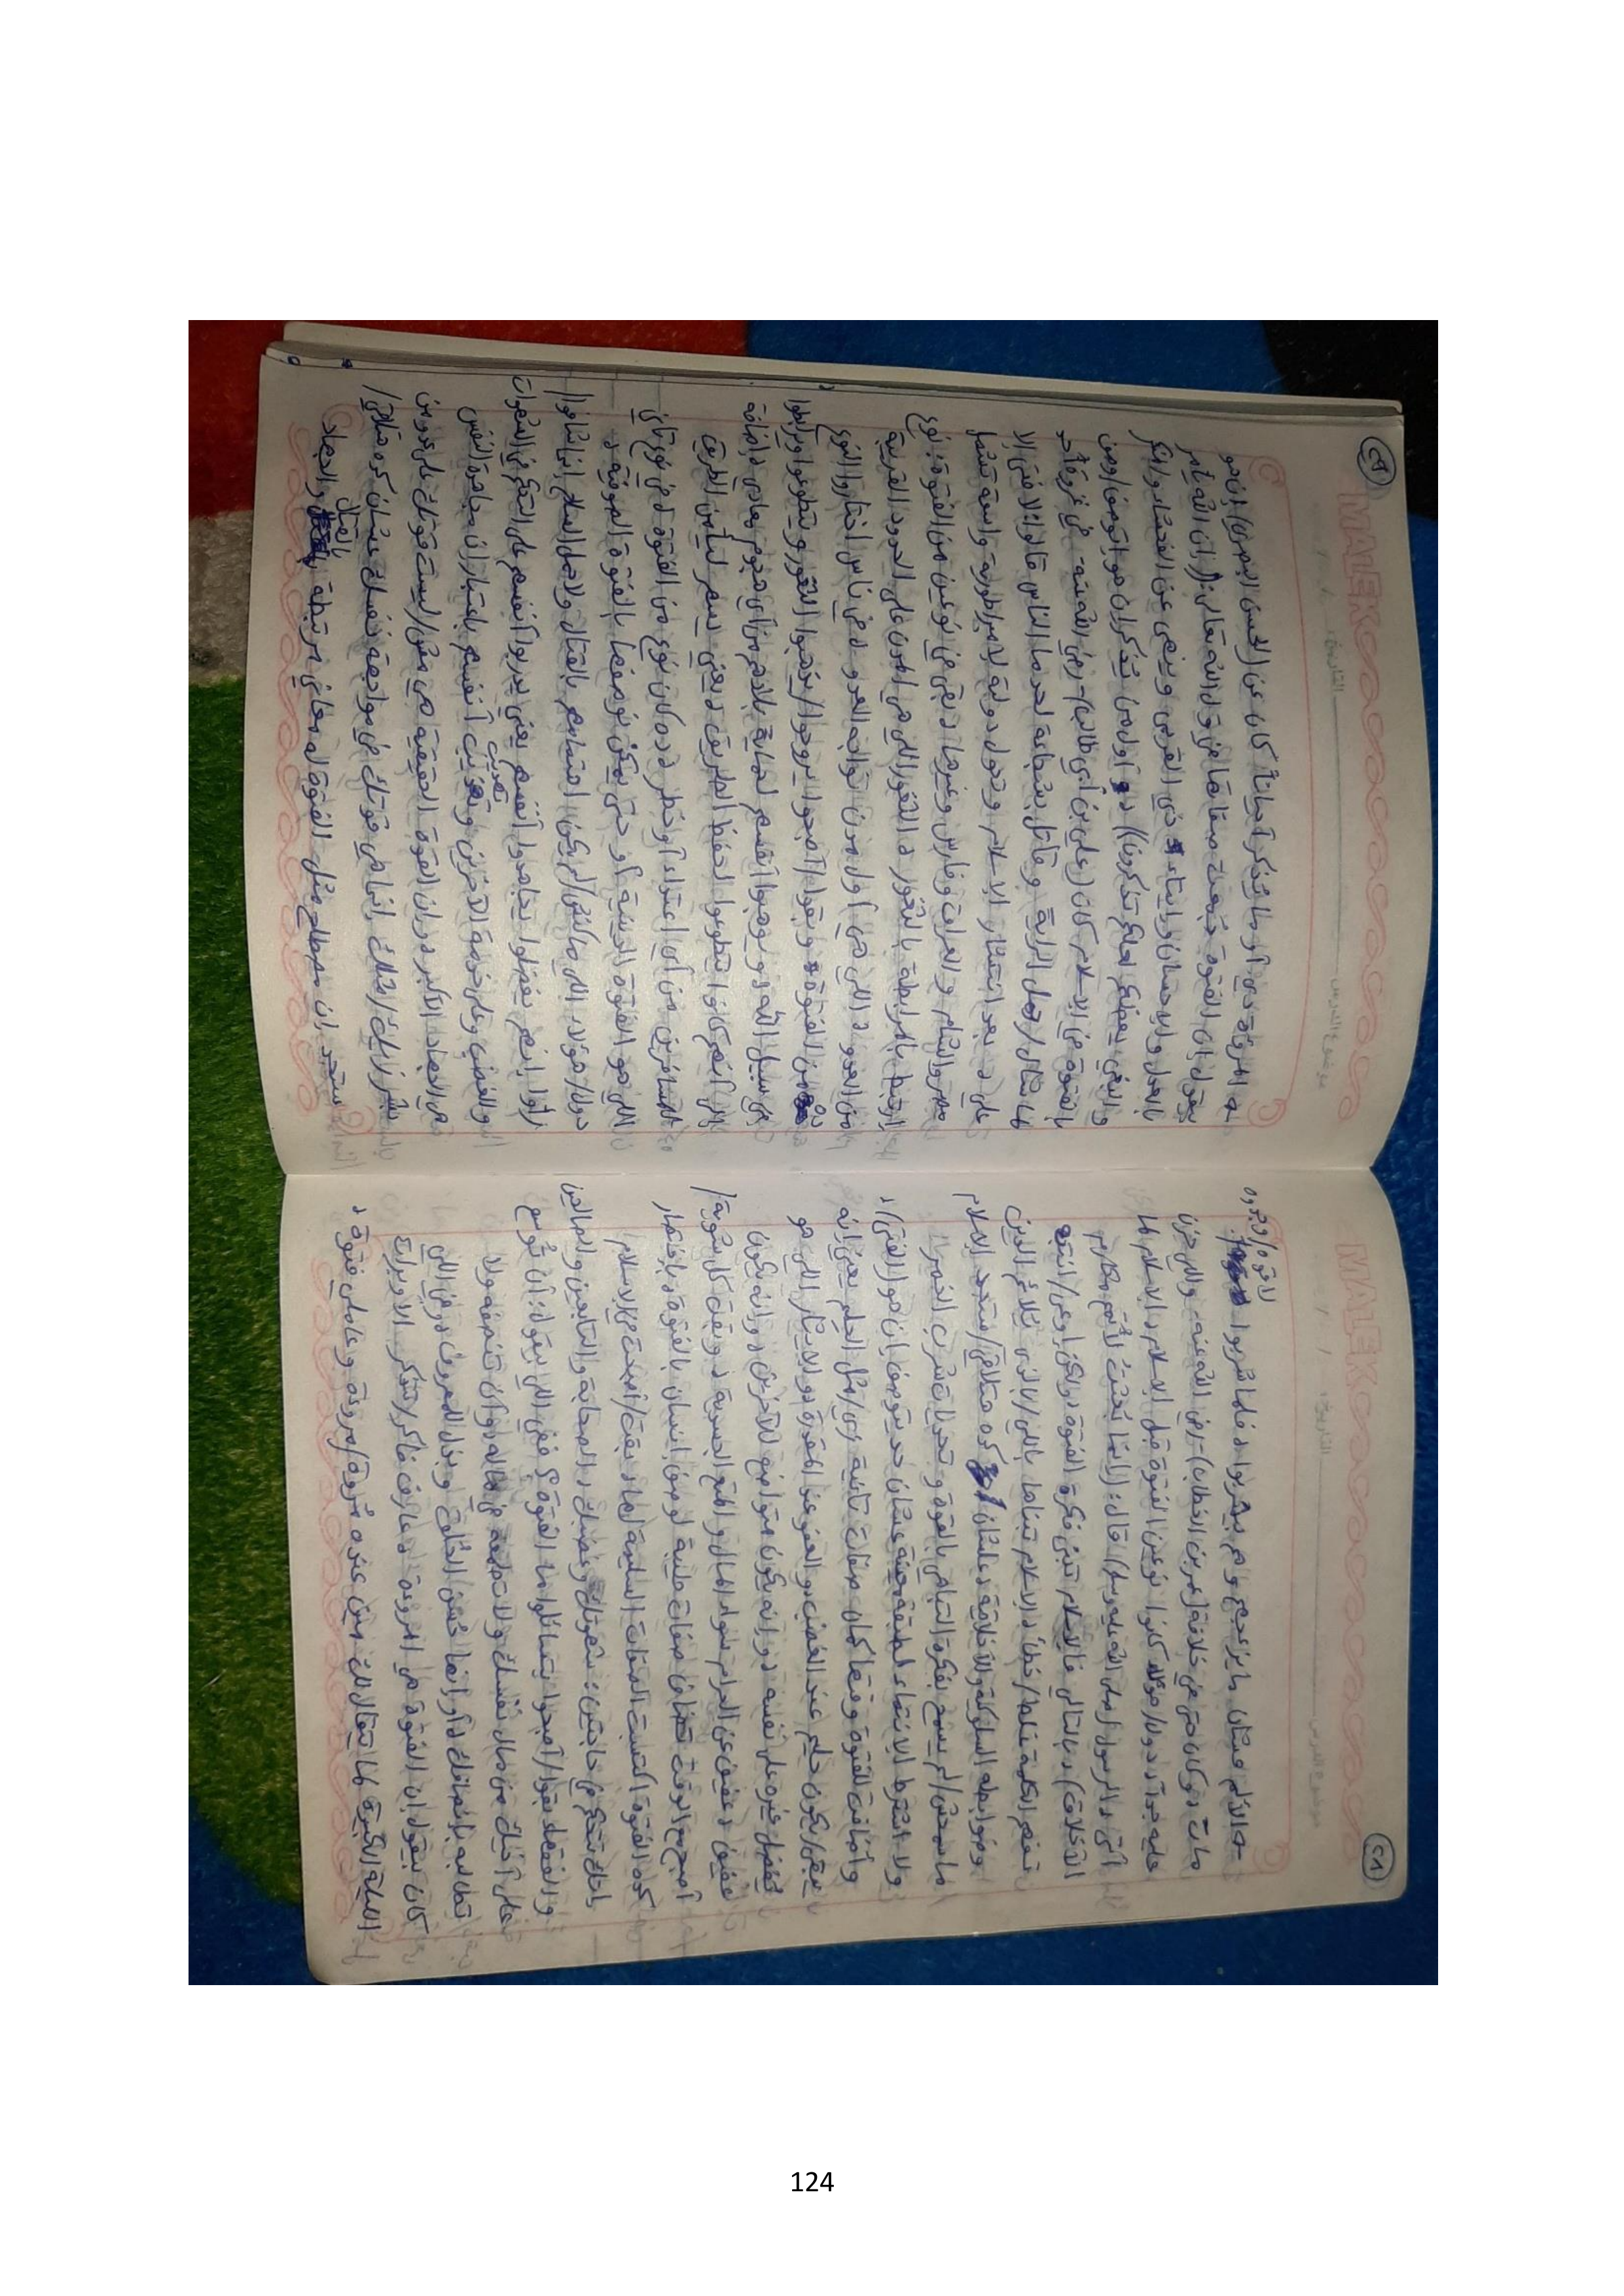 موضوع الدرس التاريخ: / / MALEK
٢٨
→ الآلام عشان ما يزعجهم وهم بيشربوا، فلما شربوا
مات، وكان حتى في خلافة (عمر بن الخطاب) - رضي الله عنه، واللي حزن
عليه جدًا، دول/هؤلاء كانوا نوعين الفتوة قبل الإسلام، الإسلام لما
أتى، الرسول (صلى الله عليه وسلم) قال: ((إنما بُعثتُ لأتمم مكارم
الأخلاق))، بالتالي فالإسلام تبنى فكرة الفتوة، ولكن اوعى/انتبه
تفهم الكلمة غلط/خطأ، الإسلام تبناها باللي/بالذي يلائم الدين
وضوابطه السلوكية والأخلاقية، علشان كده هتلاقي/ستجد الإسلام
ماسمحش/لم يسمح بفكرة التباهي بالقوة وتحديات شرب الخمر،
ولا اشترط الانتماء لطبقة معينة عشان حد يتوصف إن هو (الفتى)،
وأضافت للفتوة وقتها كمان صفات تانية زي/مثل الحلم يعني إنه
يبقى/يكون حليم عند الغضب، والعفو عند المقدرة، والإيثار اللي هو
تفضل غيره على نفسه، وإنه يكون متواضع للآخرين، وإنه يكون
عفيف، عفيف عن الحرام سواء المال والمتع الجسدية، وبقت كل شوية/
أصبح الوقت تضاف صفات طيبة لوصف إنسان بالفتوة، باختصار
كده الفتوة اكتسبت الصفات السليمة لها، بقت/أصبحت في الإسلام
إنك تتحكم في حاجتين: شهوتك وغضبك، الصحابة والتابعين والصالحين
والفقهاء بقوا/أصبحوا يتسائلوا ما الفتوة؟ ففي اللي يقول: أن توسع
على أخيك من مال نفسك ولا تطمع في ماله، وأن تنصفه ولا
تطالبه بإنصافك، أو إنها حُسن الخُلق وبذل المعروف، وفي اللي
كان بيقول إن الفتوة هي المروءة، عارف فاكر/تتذكر الأوبرات
الليلة الكبيرة لما يتقال لك مين عنده مُروة/مروءة وعاملي فتوة،
موضوع الدرس التاريخ: / / MALEK
٢٩
→ المروءة دي، أو ما يُذكر أحيانًا كان عن (الحسن البصري) إن هو
بيقول إن الفتوة جُمعت صفاتها في قول الله تعالى: ((إن الله يأمر
بالعدل والإحسان وإيتاء ذي القربى وينهى عن الفحشاء والمنكر
والبغي يعظكم لعلكم تذكرون))، أول من يُذكر إن هو اتوصف/وصف
بالفتوة في الإسلام كان (علي بن أبي طالب) - رضي الله عنه - في غزوة أحد
لما شال/حمل الراية وقاتل بشجاعة لحد ما الناس قالوا: لا فتى إلا
علي، بعد انتشار الإسلام وتحول دولته لإمبراطورية واسعة تشمل
مصر والشام والعراق وفارس وغيرها، بقى في نوعين من الفتوة: نوع
ارتبط بالمرابطة بالثغور، الثغور اللي هي المدن على الحدود القريبة
من العدو، اللي هي أول مدن تواجه العدو، في ناس اختاروا النوع
ده من الفتوة، وبقوا/أصبحوا يروحوا/يذهبوا الثغور ويتطوعوا ويرابطوا
في سبيل الله، ويوهبوا أنفسهم لحماية بلادهم من أي هجوم معادي، بإضافة
إلى أنهم كانوا يتطوعوا لحفظ الطريق، يعني يسهر لتأمين الطريق
للمسافرين من أي اعتداء أو خطر، ده كان نوع من الفتوة، في نوع تاني
اللي هو الفتوة الدينية أو حتى يمكن نوصفها بالفتوة الصوفية،
دول/هؤلاء اللي ماكنش/لم يكن اهتمامهم بالقتال ولا حمل السلاح إنما شافوا/
رأوا إنهم يفضلوا يجاهدوا أنفسهم يعني يدربوا أنفسهم على التحكم في الشهوات
والغضب وعلى خدمة الآخرين وتهذيب أنفسهم باعتبار إن مجاهدة النفس
هي الجهاد الأكبر، وإن القوة الحقيقية هي مش/ليست قوتك على عدو من
بشر زيك/مثلك إنما هي قوتك في مواجهة نفسك، عشان كده هتلاقي/
ستجد إن مصطلح مثل الفتوة له معاني مرتبطة بالقتال والجهاد
124